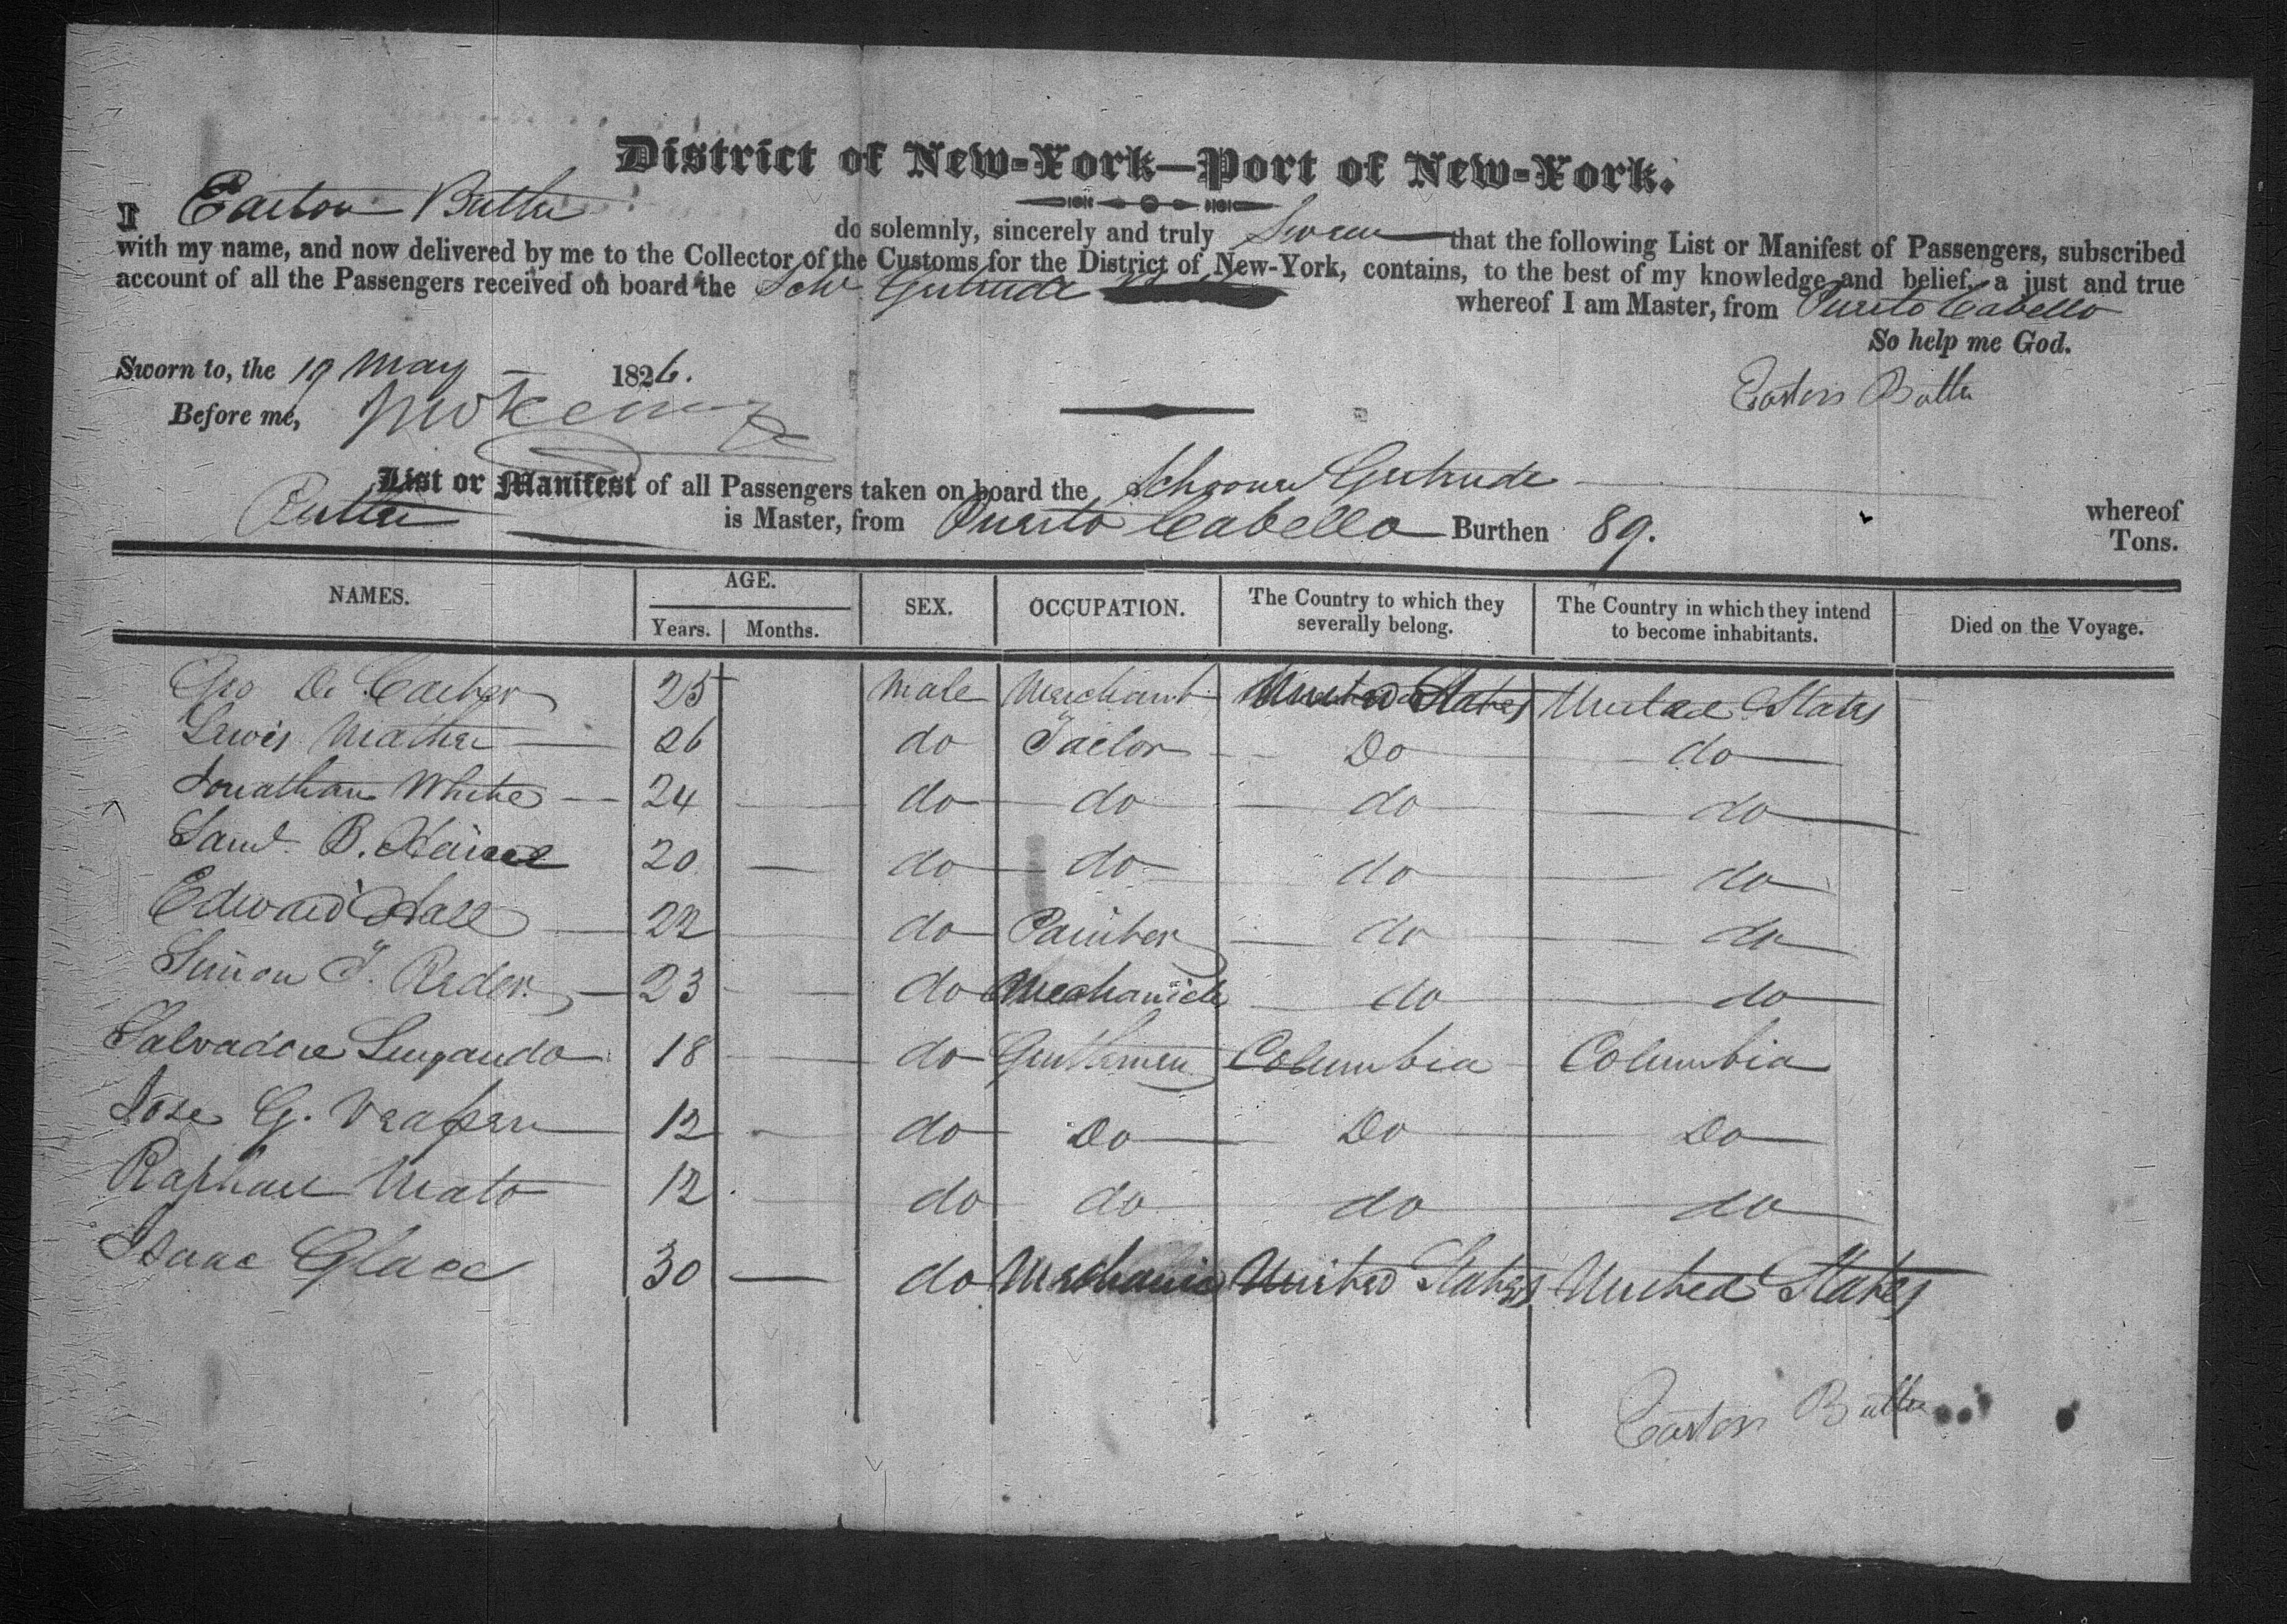 District of New-York—Port of New-York.
I Easton Butler do solemnly, sincerely and truly Swear that the following List or Manifest of Passengers, subscribed
with my name, and now delivered by me to the Collector of the Customs for the District of New-York, contains, to the best of my knowledge and belief, a just and true
account of all the Passengers received on board the Schr Gertrude whereof I am Master, from Puerto Cabello
So help me God.
Sworn to, the 19 May 1826.
Easton Butler
Before me,
List or Manifest of all Passengers taken on board the Schooner Gertrude whereof
Butler is Master, from Puerto Cabello Burthen 89. Tons.
NAMES. AGE. SEX. OCCUPATION. The Country to which they severally belong. The Country in which they intend to become inhabitants. Died on the Voyage.
Years. Months.
Geo De 25 Male Merchant United States United States
Lewis Mather 26 do Tailor Do do
Jonathan White 24 do do do do
Saml. B. 20 do do do do
Edward Hall 22 do Painter do do
Simon T. Reder 23 do Mechanick do do
Salvadore 18 do Gentlemen Columbia Columbia
Jose G. 12 do Do Do Do
Raphael Mato 12 do do do do
Isaac Glace 30 do Mechanic United States United States
Easton Butler